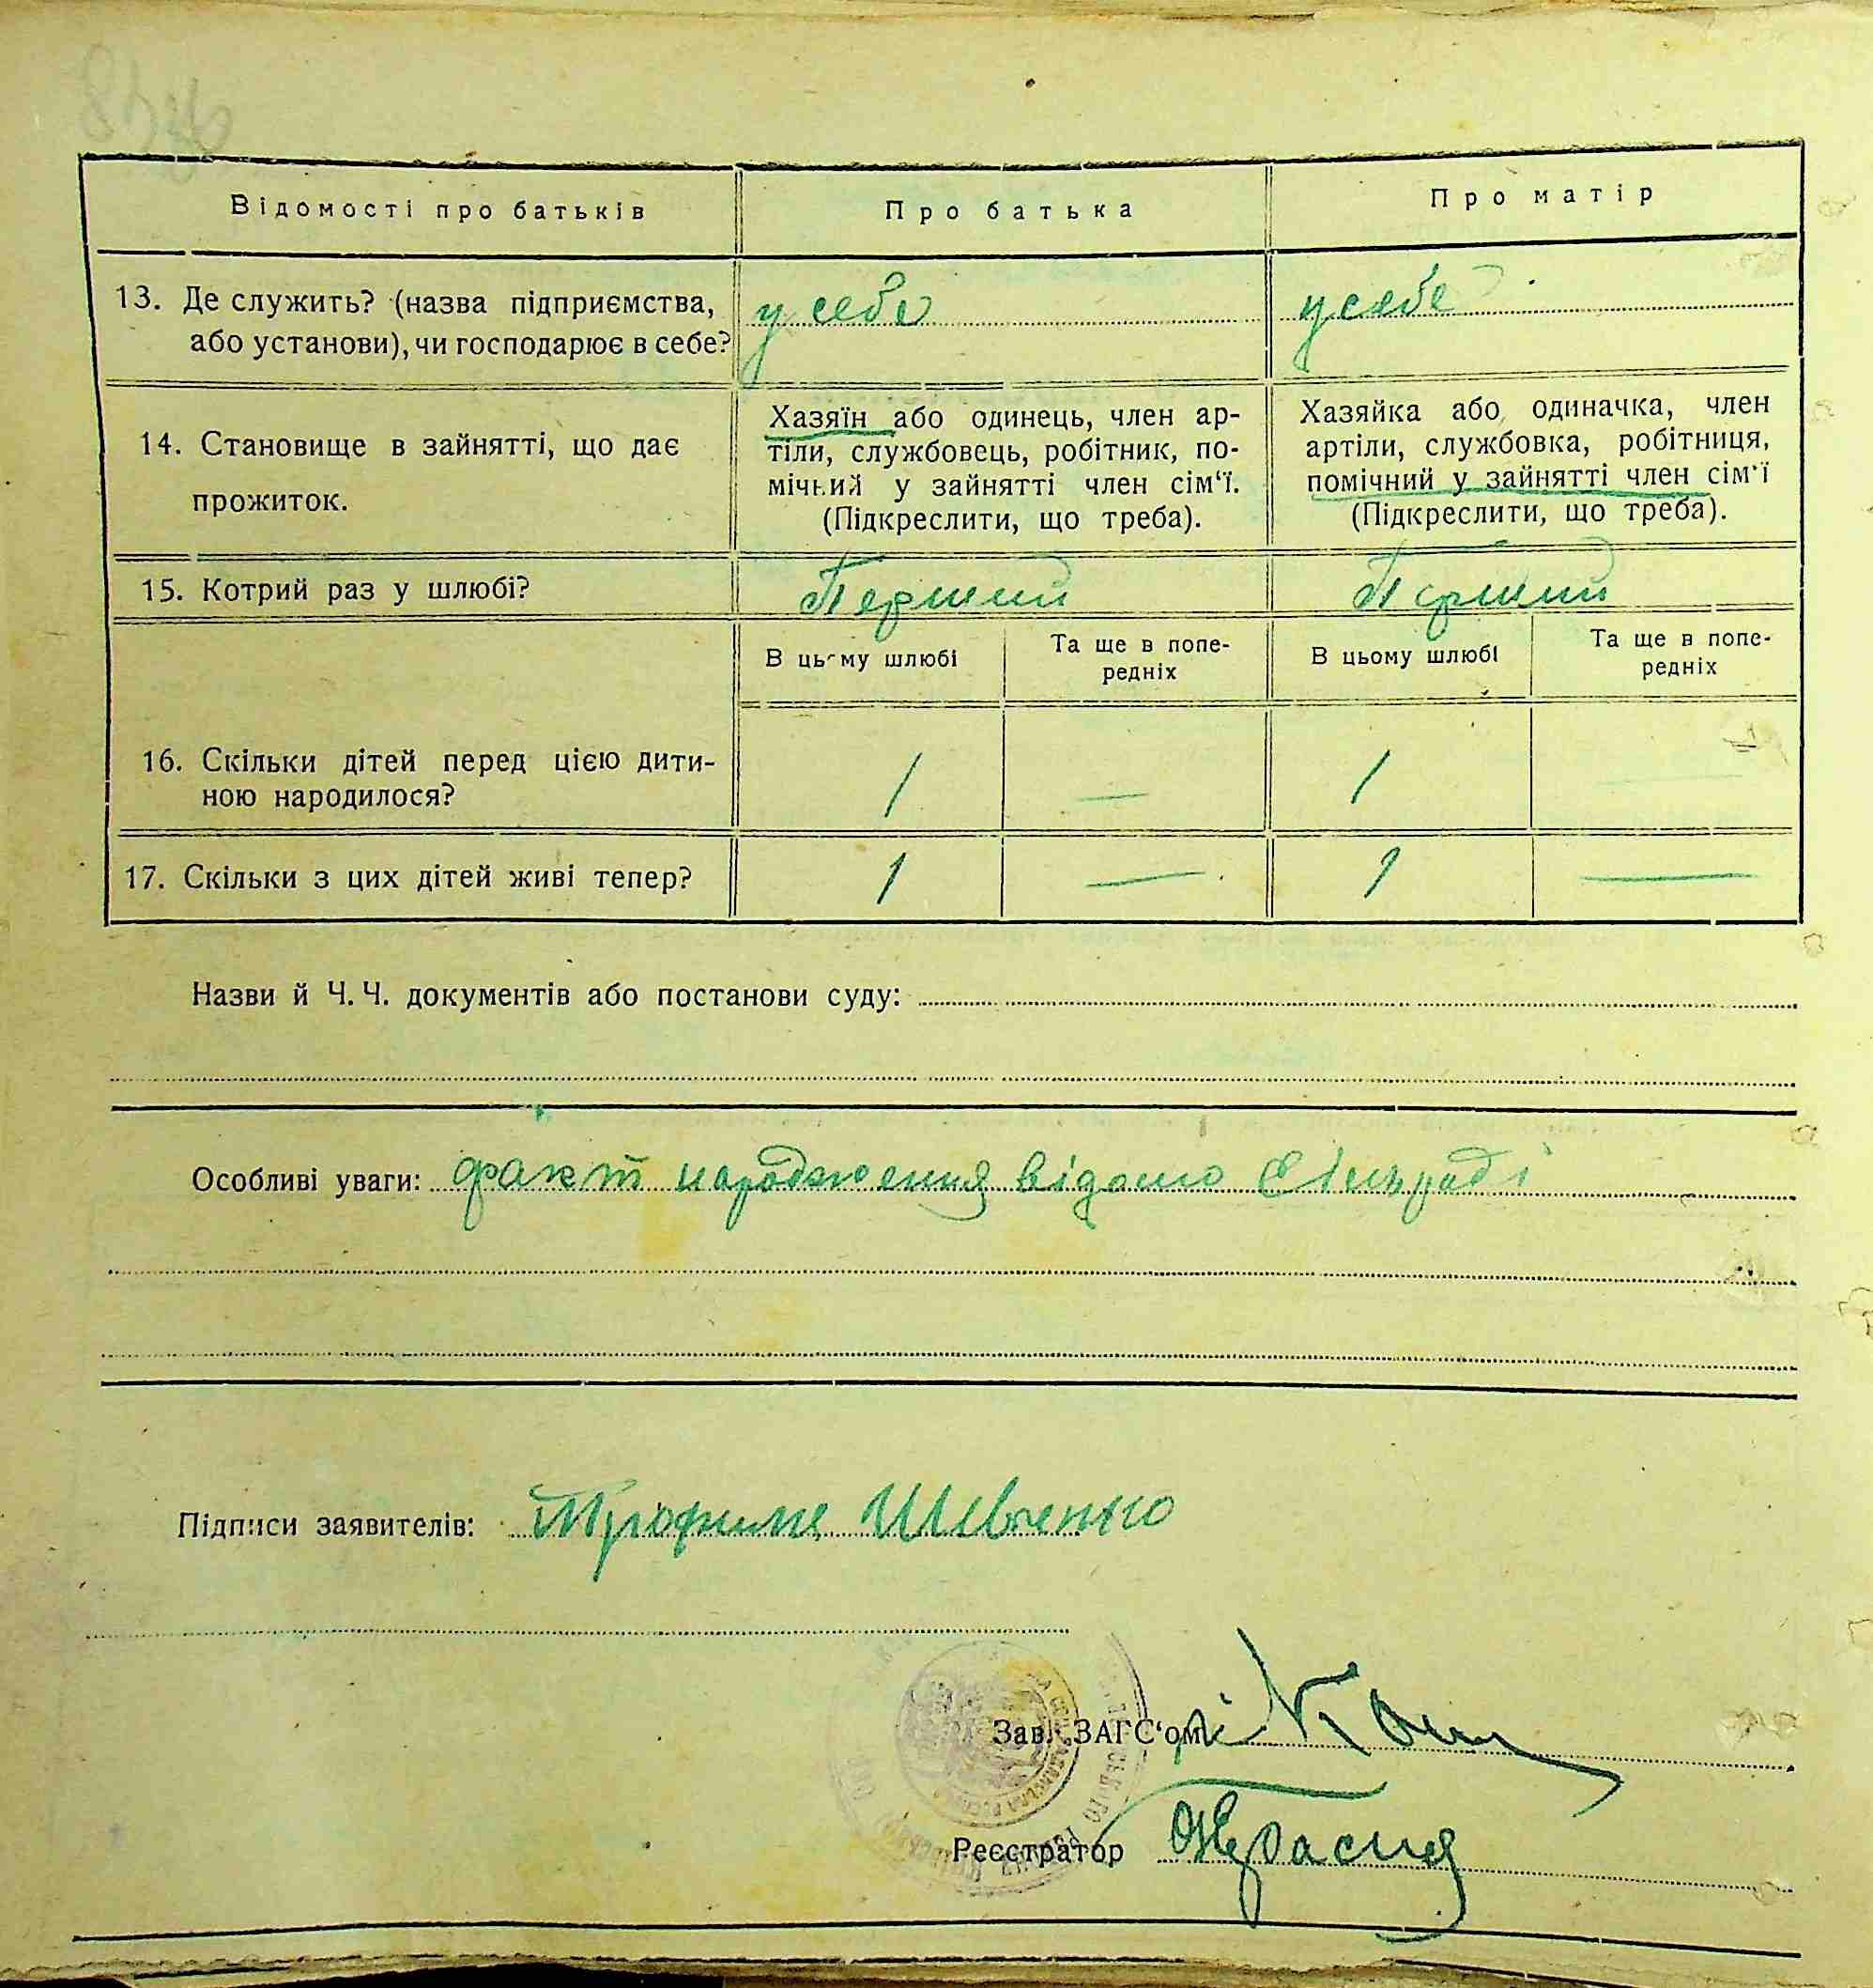 Відомості про батьків
Про батька
Про матір
13. Де служить? (назва підприємства,
або установи), чи господарює в себе?
у себе
у себе
14. Становище в зайнятті, що дає
прожиток.
Хазяїн або одинець, член ар-
тіли, службовець, робітник, по-
мічний у зайнятті член сім'ї.
(Підкреслити, що треба).
Хазяйка або одиначка, член
артіли, службовка, робітниця,
помічний у зайнятті член сім'ї
(Підкреслити, що треба).
15. Котрий раз у шлюбі?
Перший
Перший
В цьому шлюбі
Та ще в попе-
редніх
В цьому шлюбі
Та ще в попе-
редніх
16. Скільки дітей перед цією дити-
ною народилося?
1
—
1
—
17. Скільки з цих дітей живі тепер?
1
—
1
—
Назви й Ч. Ч. документів або постанови суду:
Особливі уваги: факт народження відомо Сільраді
Підписи заявителів: Шевченко
Зав. ЗАГС'ом
Реєстратор